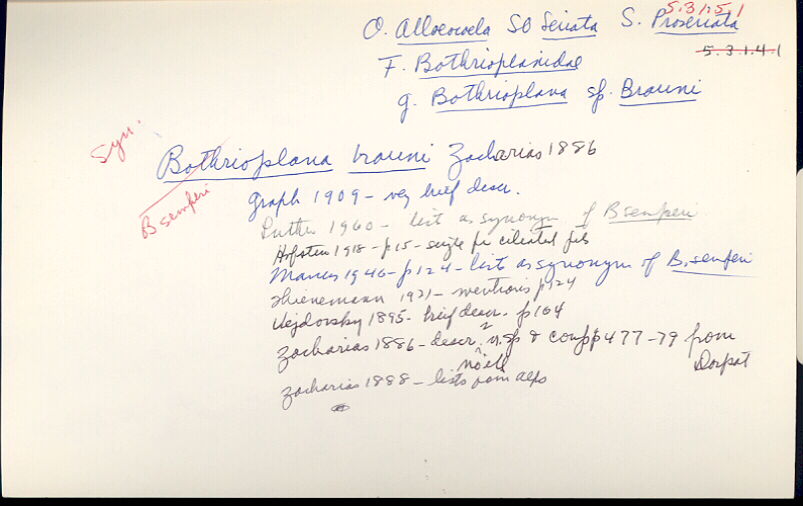 5.3.1.5.1
O. Alloeocoela SO Seriata S. Proseriata
5.3.1.4.1
F. Bothrioplanidae
g. Bothrioplana sp. Brauni
Syn.
Bothrioplana brauni Zacharias 1886
B semperi
Graph 1909 - very brief descr.
Luther 1960 - list as synonym of B semperi
Hofsten 1918 - p15 - single pr ciliated
Marcus 1946 - p124 - lists as synonym of B. semperi
Thienemann 1921 - mentions p124
Vejdovsky 1895 - brief descr. p164
Zacharias 1886 - descr. n.sp & comp p477-79 from Dorpat
no ill
Zacharias 1888 - lists from alps